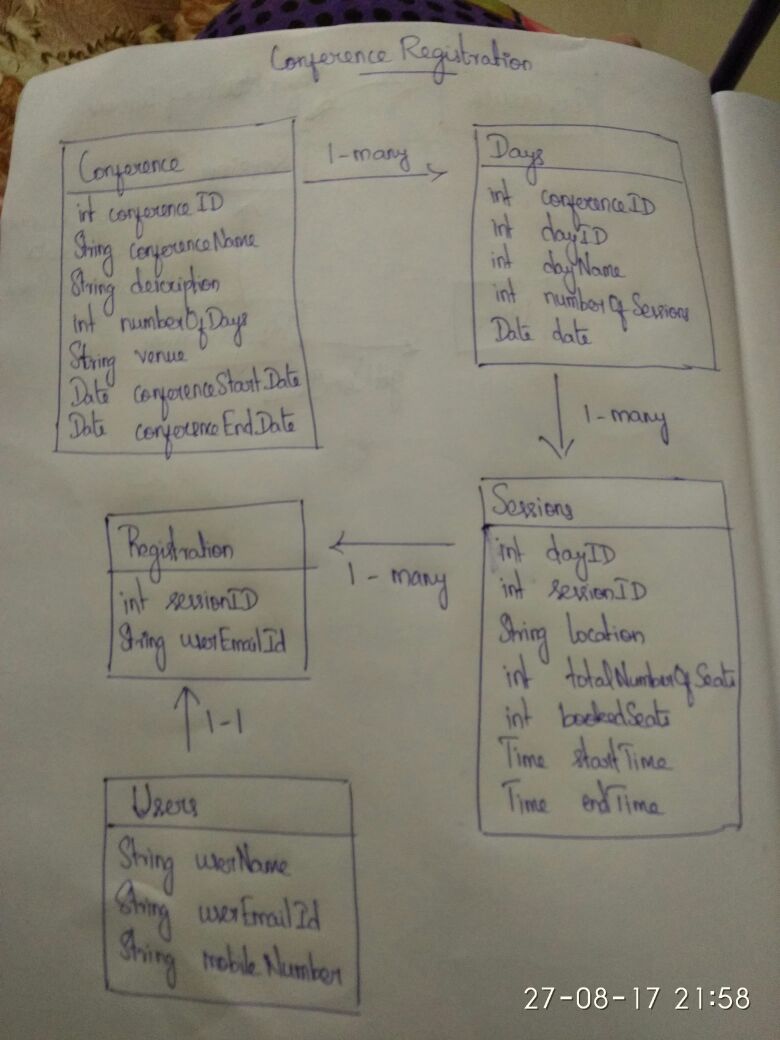 Conference Registration
Conference
int conferenceID
String conferenceName
String description
int numberOfDays
String venue
Date conferenceStartDate
Date conferenceEndDate
1-many
Days
int conferenceID
int dayID
int dayName
int numberOfSessions
Date date
1-many
Sessions
int dayID
int sessionID
String location
int totalNumberOfSeats
int bookedSeats
Time startTime
Time endTime
1-many
Registration
int sessionID
String userEmailId
1-1
Users
String userName
String userEmailId
String mobileNumber
27-08-17 21:58